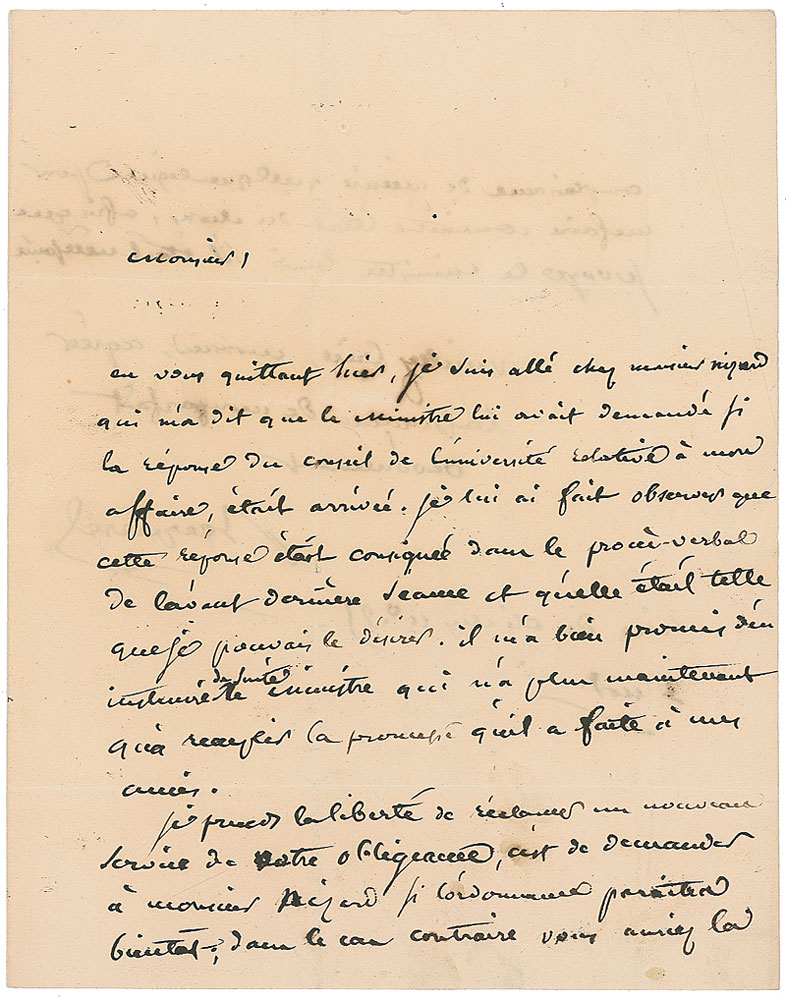 Monsieur,
en vous quittant hier, je suis allé chez monsieur nizard
qui m'a dit que le Ministre lui avait demandé si
la réponse du conseil de l'université relative à mon
affaire, était arrivée. je lui ai fait observer que
cette réponse était consignée dans le procès-verbal
de l'avant dernière séance et qu'elle était telle
que je pouvais le désirer. il m'a bien promis d'en
instruire de suite le Ministre qui n'a plus maintenant
qu'à remplir la promesse qu'il a faite à mes
amis.
je prends la liberté de réclamer un nouveau
service de votre obligeance, c'est de demander
à monsieur Nizard si l'ordonnance paraîtra
bientôt; dans le cas contraire vous auriez la